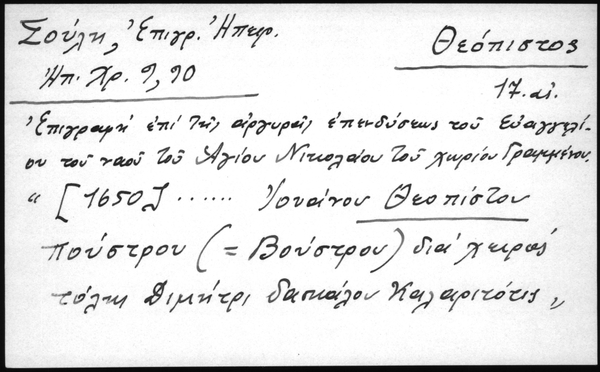 Σούλη, Ἐπιγρ. Ἠπειρ.
Θεόπιστος
Ἠπ. Χρ. 9, 90
17. αἰ.
Ἐπιγραφή ἐπί τῆς ἀργυρᾶς ἐπενδύσεως τοῦ Εὐαγγελί-
ου τοῦ ναοῦ τοῦ Ἁγίου Νικολαίου τοῦ χωρίου Γραμμένου.
“ [1650] ...... Ἰουαίνου Θεοπίστου
πούστρου (= Βούστρου) διά χειρός
τόλη Διμήτρι δασκάλου Καλαριτότις „